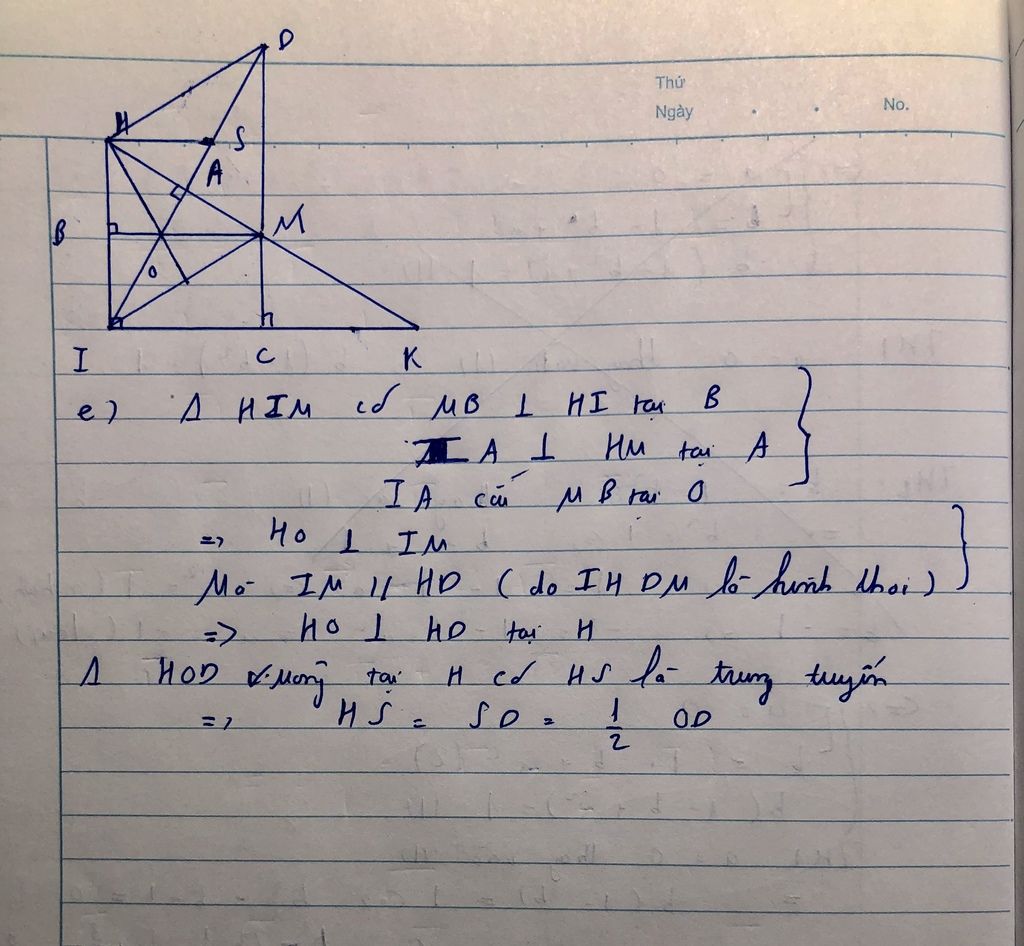 Thứ
Ngày . . No.
D
H
S
A
B
M
O
I C K
e) Δ HIM có MB ⊥ HI tại B
IA ⊥ HM tại A
IA cắt MB tại O
=> HO ⊥ IM
Mà IM // HD (do IHDM là hình thoi)
=> HO ⊥ HD tại H
Δ HOD vuông tại H có HS là trung tuyến
=> HS = SD = 1/2 OD